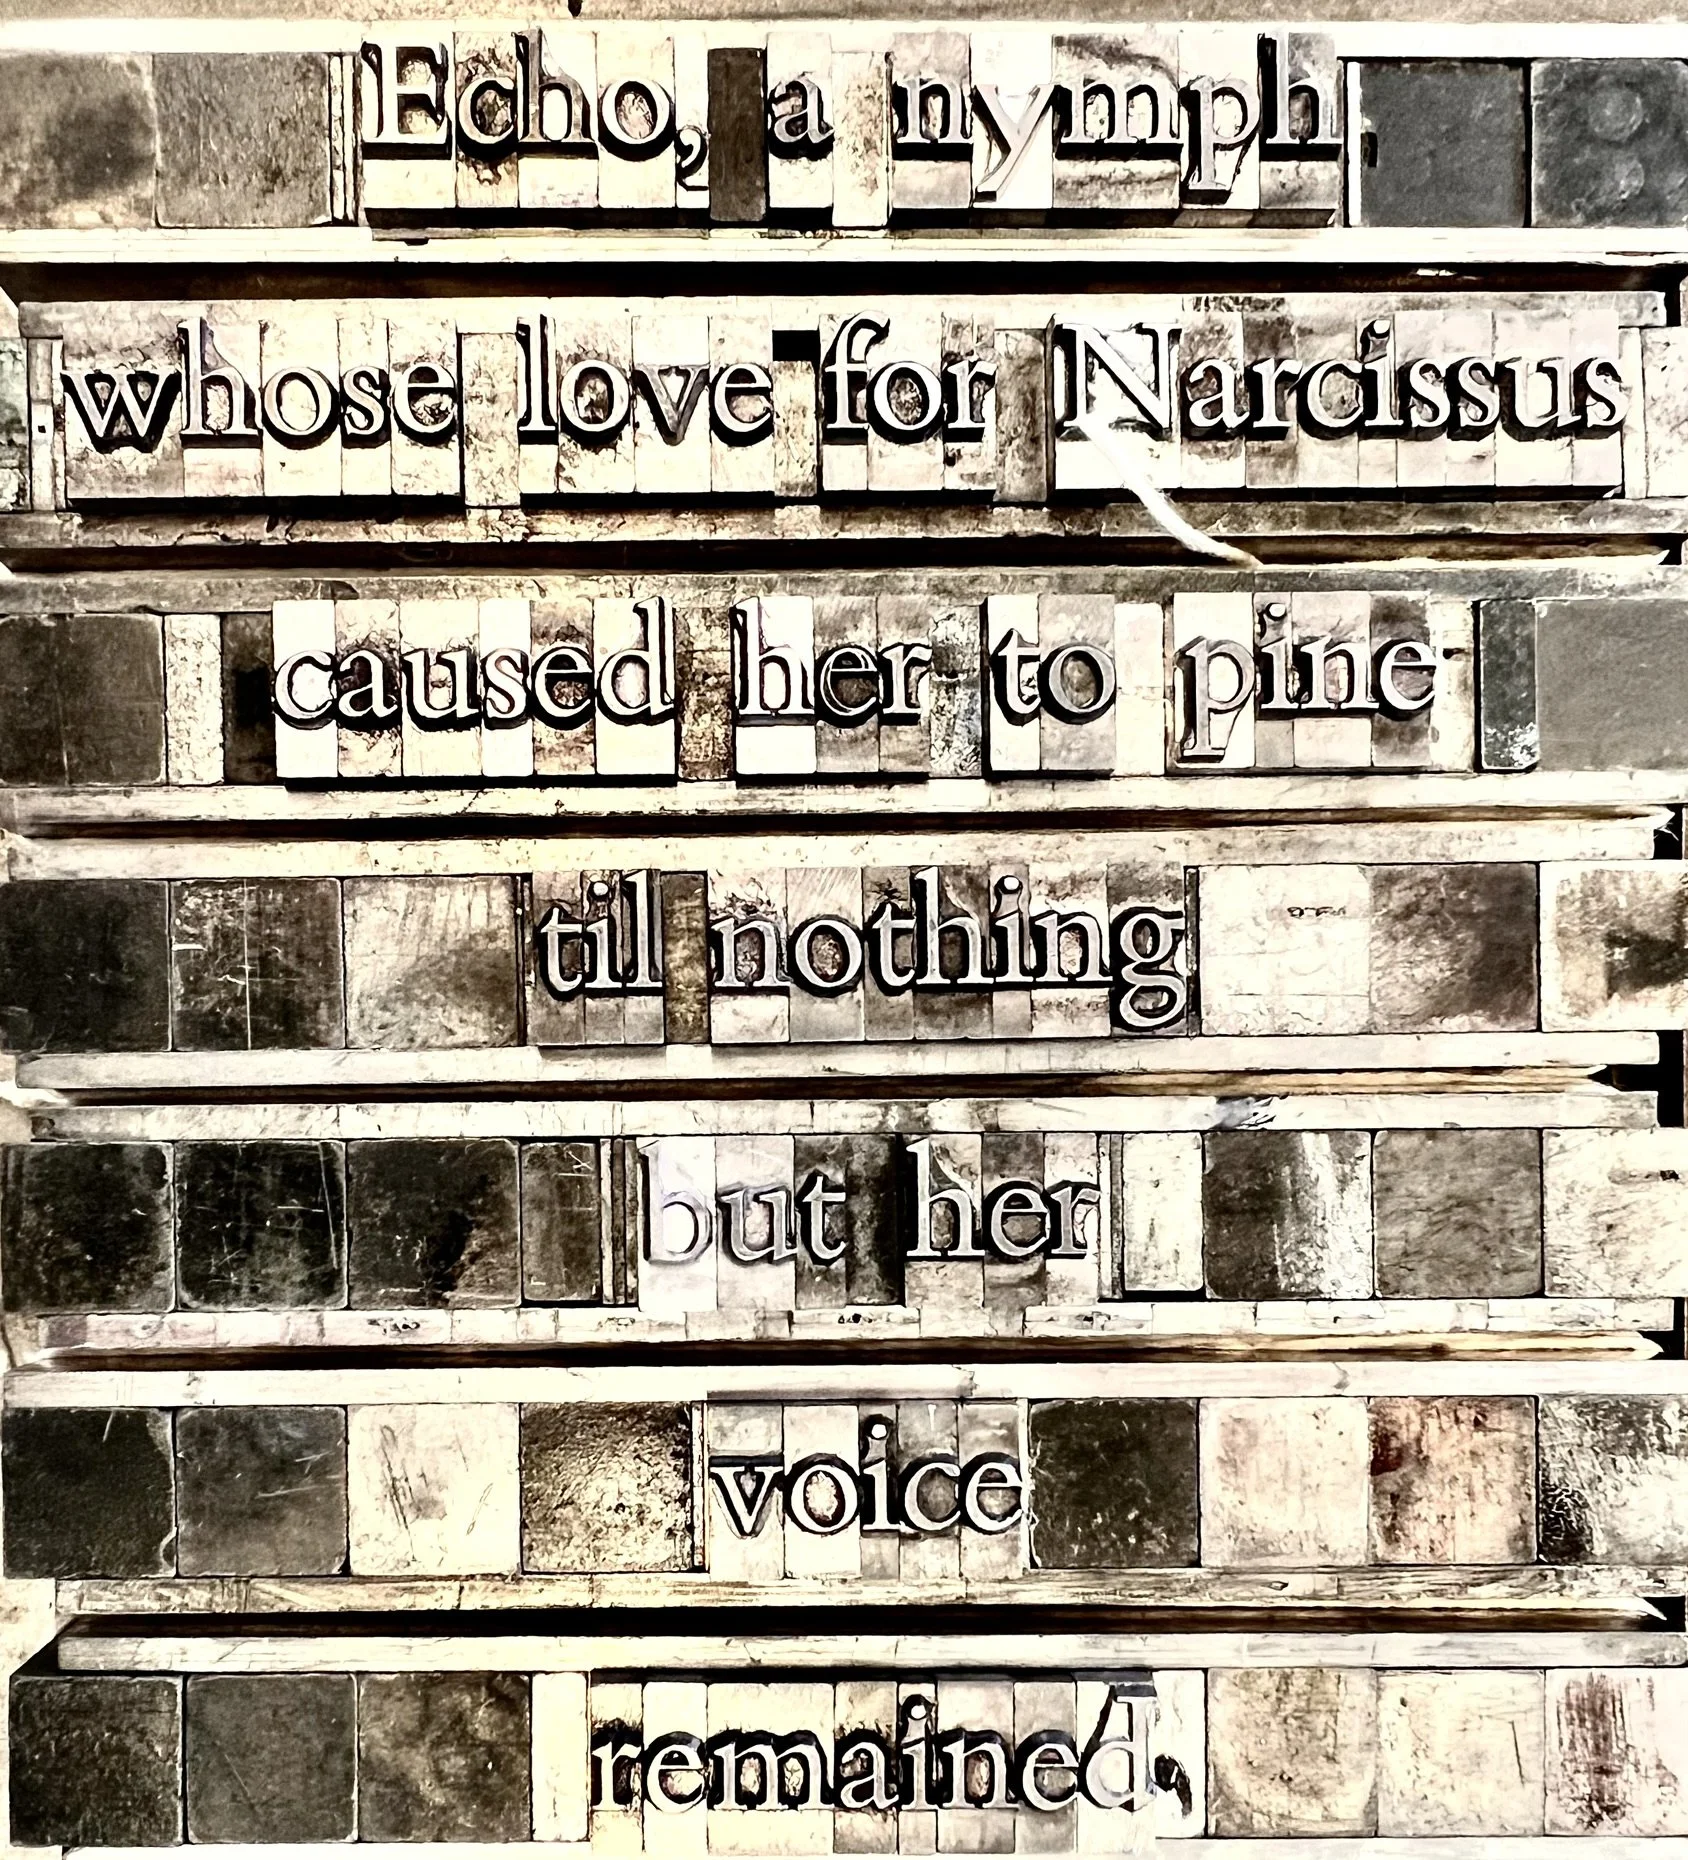 Echo, a nymph
whose love for Narcissus
caused her to pine
til nothing
but her
voice
remained,